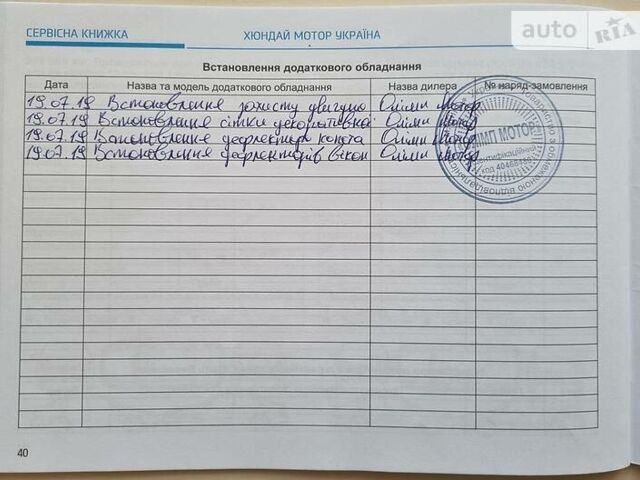 СЕРВІСНА КНИЖКА ХЮНДАЙ МОТОР УКРАЇНА
auto RIA
Встановлення додаткового обладнання
Дата Назва та модель додаткового обладнання Назва дилера № наряд-замовлення
19.07.19 Встановлення захисту двигуна Олімп Мотор
19.07.19 Встановлення сітки декоративної Олімп Мотор
19.07.19 Встановлення дефлектора капота Олімп Мотор
19.07.19 Встановлення дефлекторів вікон Олімп Мотор
ОЛІМП МОТОР
ідентифікаційний
код
40